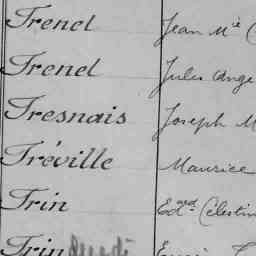 Frenel Jean Mie (
Frenel Jules Ange
Fresnais Joseph M
Fréville Maurice
Frin Edard Célestin
Frin